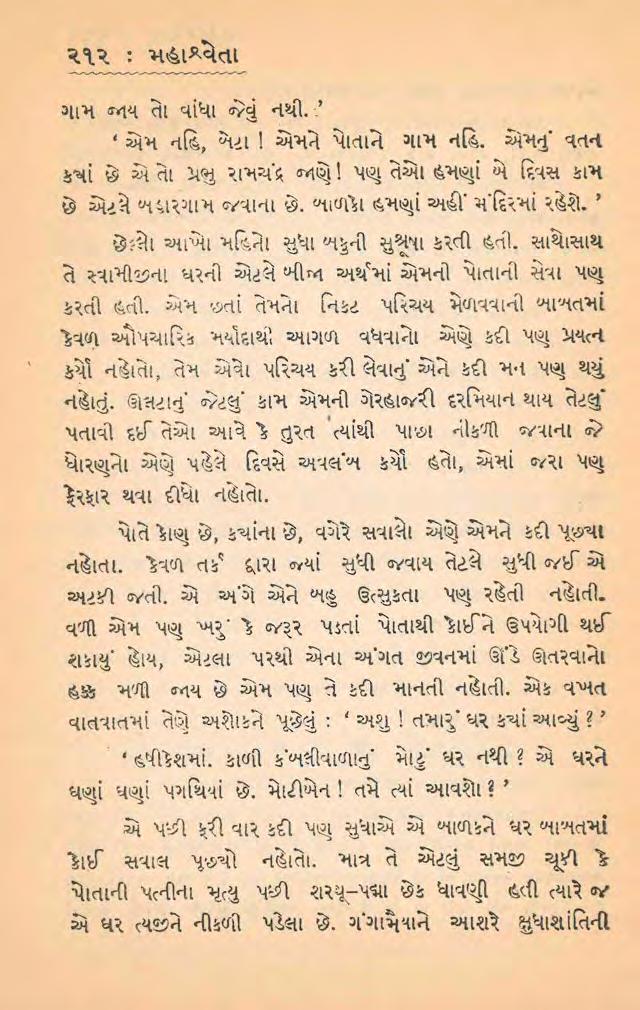 ૨૧૨ : મહાશ્વેતા
ગામ જાય તો વાંધા જેવું નથી.’
‘ એમ નહિ, બેટા ! એમને પોતાને ગામ નહિ. એમનું વતન
ક્યાં છે એ તો પ્રભુ રામચંદ્ર જાણે! પણ તેઓ હમણાં બે દિવસ કામ
છે એટલે બહારગામ જવાના છે. બાળકો હમણાં અહીં મંદિરમાં રહેશે. ’
છેલ્લો આખો મહિનો સુધા બકુની સુશ્રૂષા કરતી હતી. સાથોસાથ
તે સ્વામીજીના ઘરની એટલે બીજા અર્થમાં એમની પોતાની સેવા પણ
કરતી હતી. એમ છતાં તેમનો નિકટ પરિચય મેળવવાની બાબતમાં
કેવળ ઔપચારિક મર્યાદાથી આગળ વધવાનો એણે કદી પણ પ્રયત્ન
કર્યો નહોતો, તેમ એવો પરિચય કરી લેવાનું એને કદી મન પણ થયું
નહોતું. ઊલટાનું જેટલું કામ એમની ગેરહાજરી દરમિયાન થાય તેટલું
પતાવી દઈ તેઓ આવે કે તુરત ત્યાંથી પાછા નીકળી જવાના જે
ધોરણનો એણે પહેલે દિવસે અવલંબ કર્યો હતો, એમાં જરા પણ
ફેરફાર થવા દીધો નહોતો.
પોતે કોણ છે, ક્યાંના છે, વગેરે સવાલો એણે એમને કદી પૂછ્યા
નહોતા. કેવળ તર્ક દ્વારા જ્યાં સુધી જવાય તેટલે સુધી જઈ એ
અટકી જતી. એ અંગે એને બહુ ઉત્સુકતા પણ રહેતી નહોતી.
વળી એમ પણ ખરું કે જરૂર પડતાં પોતાથી કોઈને ઉપયોગી થઈ
શકાયું હોય, એટલા પરથી એના અંગત જીવનમાં ઊંડે ઊતરવાનો
હક્ક મળી જાય છે એમ પણ તે કદી માનતી નહોતી. એક વખત
વાતવાતમાં તેણે અશોકને પૂછેલું : ‘ અશુ ! તમારું ઘર ક્યાં આવ્યું ? ’
‘ હૃષીકેશમાં. કાળી કંબલીવાળાનું મોટું ઘર નથી ? એ ઘરને
ઘણાં ઘણાં પગથિયાં છે. મોટીબેન ! તમે ત્યાં આવશો ? ’
એ પછી ફરી વાર કદી પણ સુધાએ એ બાળકને ઘર બાબતમાં
કોઈ સવાલ પૂછ્યો નહોતો. માત્ર તે એટલું સમજી ચૂકી કે
પોતાની પત્નીના મૃત્યુ પછી શરયૂ–પદ્મા છેક ધાવણી હતી ત્યારે જ
એ ઘર ત્યજીને નીકળી પડેલા છે. ગંગામૈયાને આશરે ક્ષુધાશાંતિની